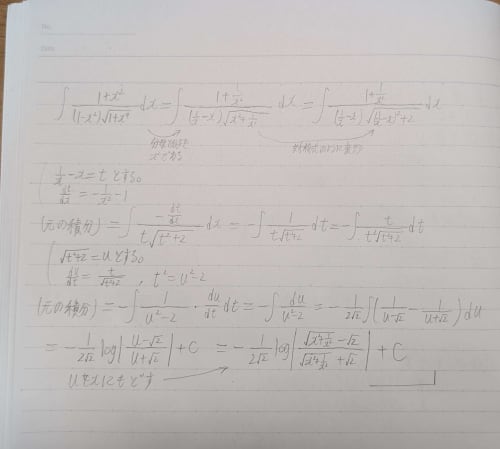 No.
Date
∫ (1+x²)/((1-x²)√(1+x⁴)) dx = ∫ (1+1/x²)/((1/x-x)√(x²+1/x²)) dx = ∫ (1+1/x²)/((1/x-x)√((1/x-x)²+2)) dx
1/x - x = t とする。
dt/dx = -1/x² - 1
(元の積分) = ∫ (-dt/dx)/(t√(t²+2)) dx = -∫ 1/(t√(t²+2)) dt = -∫ t/(t²√(t²+2)) dt
√(t²+2) = u とする。
du/dt = t/√(t²+2) , t² = u²-2
(元の積分) = -∫ 1/(u²-2) · du/dt dt = -∫ du/(u²-2) = -1/(2√2) ∫ (1/(u-√2) - 1/(u+√2)) du
= -1/(2√2) log|(u-√2)/(u+√2)| + C = -1/(2√2) log|(√(x²+1/x²) - √2)/(√(x²+1/x²) + √2)| + C
uをxにもどす